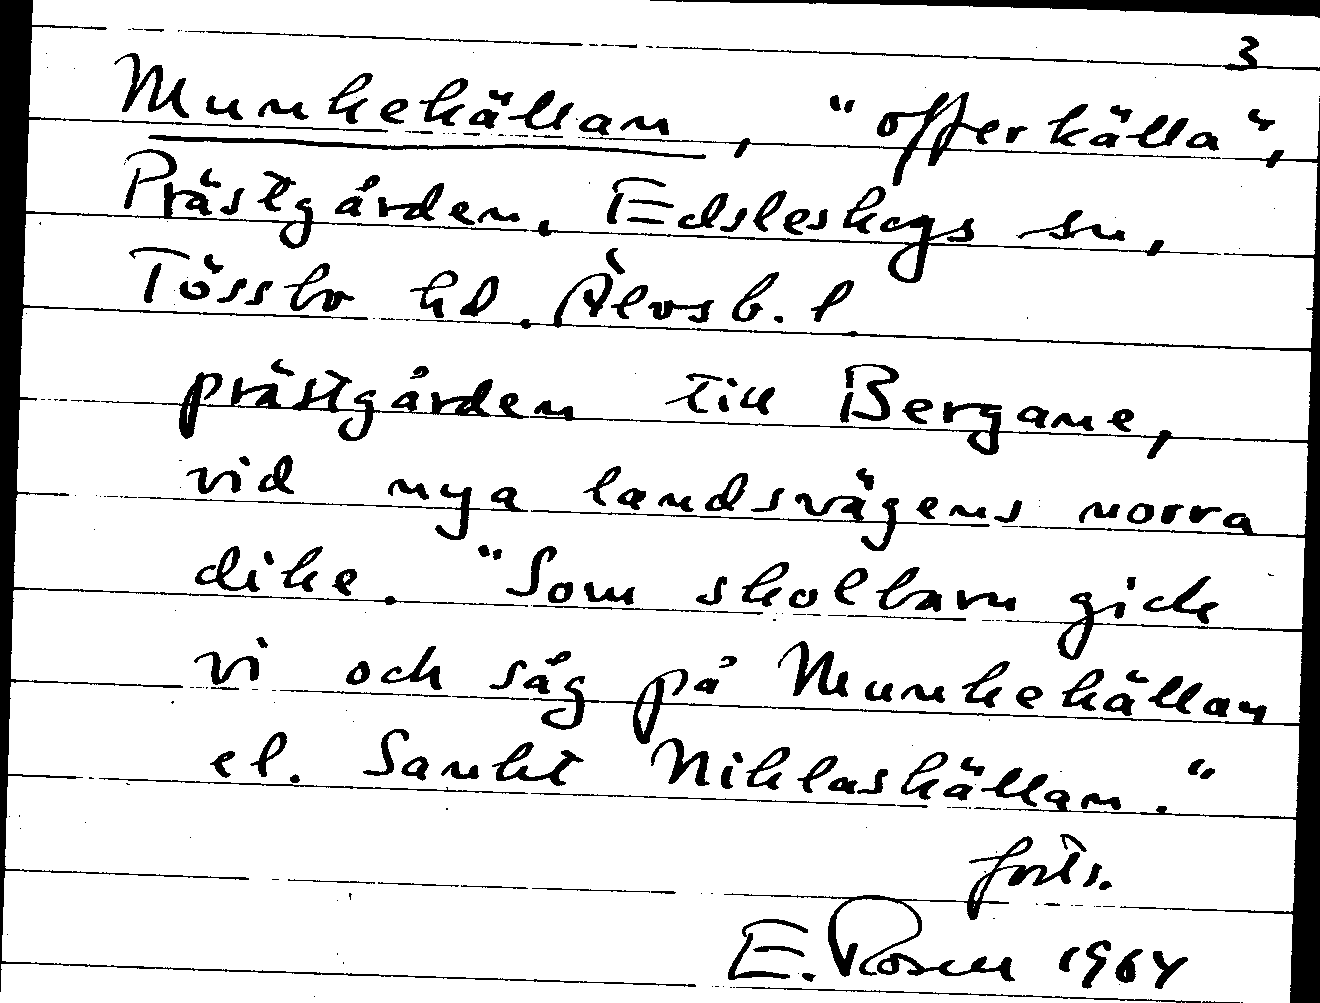 3
Munkekällan, "offerkälla",
Prästgården, Edsleskogs sn,
Tössbo hd. Älvsb. l.
prästgården till Bergane,
vid nya landsvägens norra
dike. "Som skolbarn gick
vi och såg på Munkekällan
el. Sankt Niklaskällan."
forts.
E. Rosen 1964